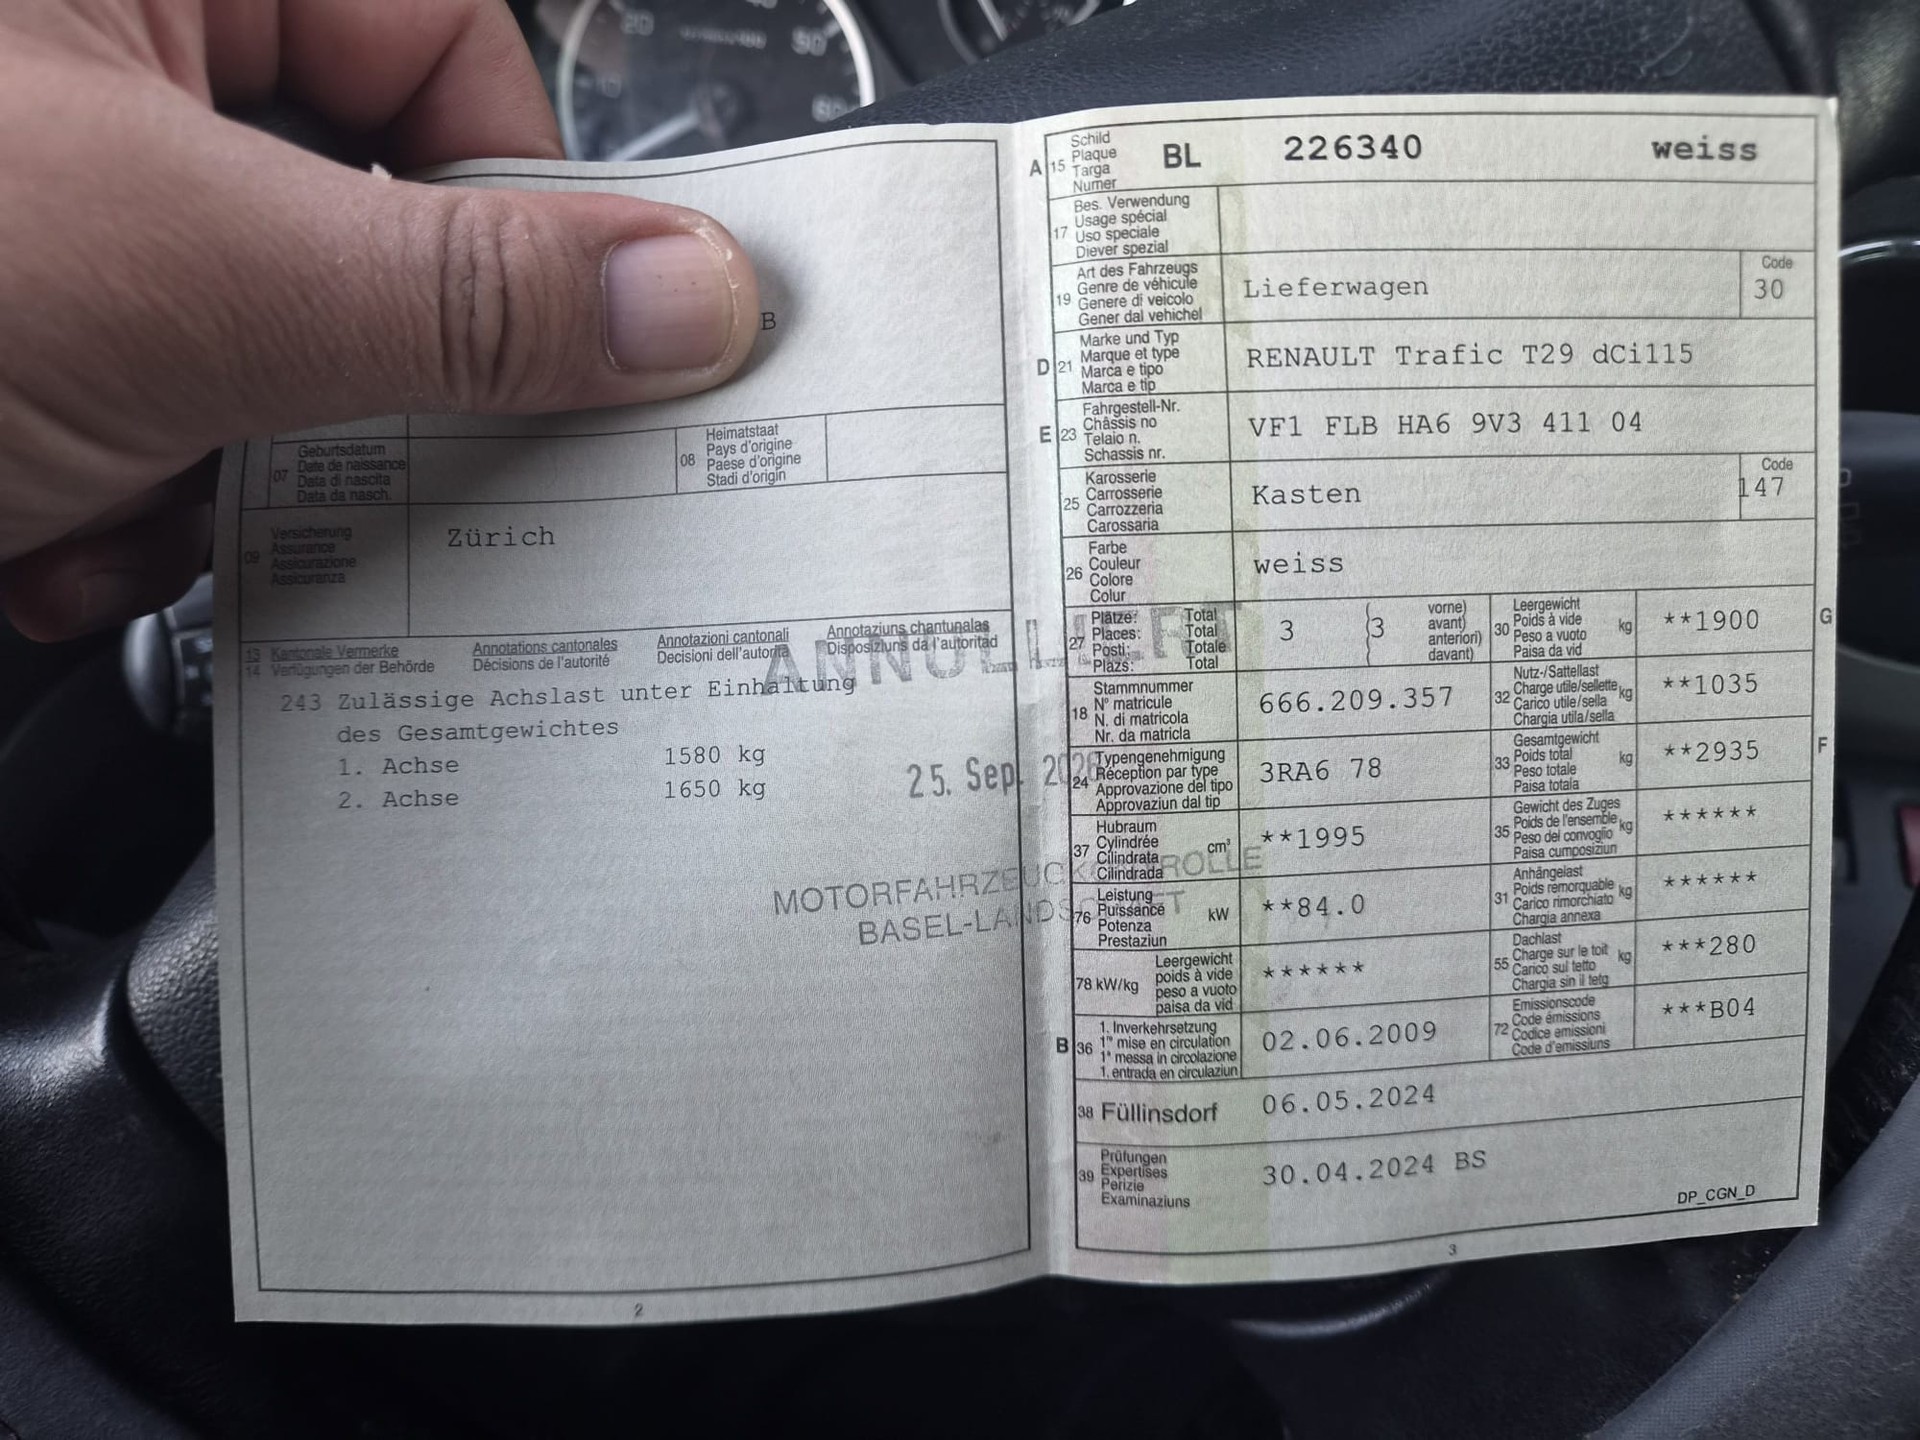 B
07 Geburtsdatum
Date de naissance
Data di nascita
Data da nasch.
08 Heimatstaat
Pays d'origine
Paese d'origine
Stadi d'origin
09 Versicherung
Assurance
Assicurazione
Assicuranza
Zürich
13 Kantonale Vermerke
14 Verfügungen der Behörde
Annotations cantonales
Décisions de l'autorité
Annotazioni cantonali
Decisioni dell'autorità
Annotaziuns chantunalas
Disposiziuns da l'autoritad
ANNULLIERT
243 Zulässige Achslast unter Einhaltung
des Gesamtgewichtes
1. Achse 1580 kg
2. Achse 1650 kg
25. Sep.
MOTORFAHRZEUGKONTROLLE
BASEL-LANDSCHAFT
2
A 15 Schild
Plaque
Targa
Numer
BL 226340 weiss
17 Bes. Verwendung
Usage spécial
Uso speciale
Diever spezial
19 Art des Fahrzeugs
Genre de véhicule
Genere di veicolo
Gener dal vehichel
Lieferwagen
Code
30
D 21 Marke und Typ
Marque et type
Marca e tipo
Marca e tip
RENAULT Trafic T29 dCi115
E 23 Fahrgestell-Nr.
Châssis no
Telaio n.
Schassis nr.
VF1 FLB HA6 9V3 411 04
25 Karosserie
Carrosserie
Carrozzeria
Carossaria
Kasten
Code
147
26 Farbe
Couleur
Colore
Colur
weiss
27 Plätze: Total
Places: Total
Posti: Totale
Plazs: Total
3 (3 vorne)
avant)
anteriori)
davant)
30 Leergewicht
Poids à vide
Peso a vuoto
Paisa da vid
kg **1900 G
18 Stammnummer
N° matricule
N. di matricola
Nr. da matricla
666.209.357
32 Nutz-/Sattellast
Charge utile/sellette
Carico utile/sella
Chargia utila/sella
kg **1035
24 Typengenehmigung
Réception par type
Approvazione del tipo
Approvaziun dal tip
3RA6 78
33 Gesamtgewicht
Poids total
Peso totale
Paisa totala
kg **2935 F
37 Hubraum
Cylindrée
Cilindrata
Cilindrada
cm³ **1995
35 Gewicht des Zuges
Poids de l'ensemble
Peso del convoglio
Paisa cumposiziun
kg ******
76 Leistung
Puissance
Potenza
Prestaziun
kW **84.0
31 Anhängelast
Poids remorquable
Carico rimorchiato
Chargia annexa
kg ******
78 kW/kg Leergewicht
poids à vide
peso a vuoto
paisa da vid
******
55 Dachlast
Charge sur le toit
Carico sul tetto
Chargia sin il tetg
kg ***280
B 36 1. Inverkehrsetzung
1re mise en circulation
1a messa in circolazione
1. entrada en circulaziun
02.06.2009
72 Emissionscode
Code émissions
Codice emissioni
Code d'emissiuns
***B04
38 Füllinsdorf 06.05.2024
39 Prüfungen
Expertises
Perizie
Examinaziuns
30.04.2024 BS
DP_CGN_D
3